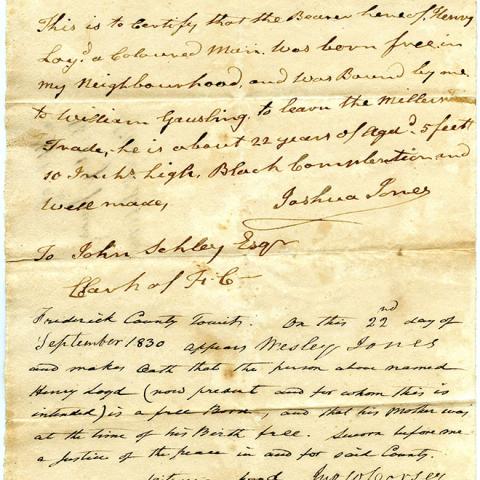 This is to Certify that the Bearer hereof Henry
Loyd a Coloured Man was born free in
my Neighbourhood, and was Bound by me
to William Gausling to learn the Millers
Trade, he is about 22 years of Age, 5 feet
10 Inchs high, Black Complection and
well made,
Joshua Jones
To John Schley Esqr
Clerk of F. C
Frederick County Towit. On this 22nd day of
September 1830 appears Wesley Jones
and makes Oath that the person above named
Henry Loyd (now present and for whom this is
intended) is a free Born, and that his Mother was
at the time of his Birth free. Sworn before me
a Justice of the peace in and for said County.